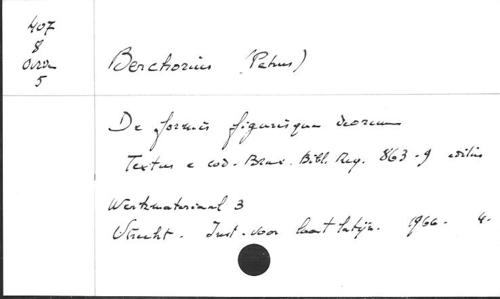 407
8
Ovid
5
Berchorius (Petrus)
De formis figurisque deorum
Textus e cod. Brux. Bibl. Reg. 863-9 editus
Werkmateriaal 3
Utrecht. Inst. voor laat latijn. 1966. 4.